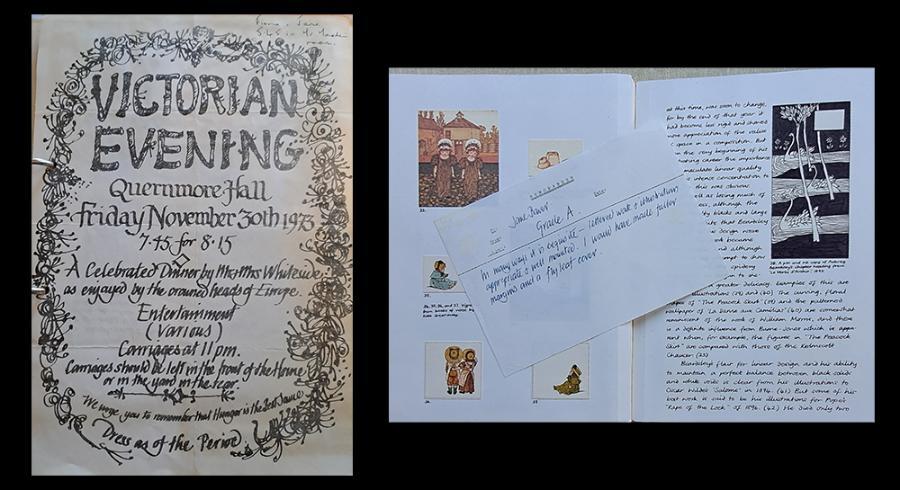 Fiona, Jane
VICTORIAN
EVENING
Quernmore Hall
Friday November 30th 1973
7·45 for 8·15
A Celebrated Dinner by Mr & Mrs Whiteside
as enjoyed by the crowned heads of Europe.
Entertainment
(various)
Carriages at 11 pm.
Carriages should be left in the front of the House
or in the yard in the rear.
We urge you to remember that Hunger is the Best Sauce
Dress as of the Period
Grade A.
In many ways it is exquisite – lettered work & illustrations
appropriate & well mounted. I would have made fatter
margins and a fly leaf cover.
at this time, was soon to change,
for by the end of that year it
had become less rigid and showed
more appreciation of the value
space in a composition. But
the very beginning of his
career the importance
linear quality
concentration to
this was obvious
as losing much of
although the
black and large
but that Beardsley
design were
became
and although
to show
greater delicacy. Examples of this are
illustrations (39) and (40). The curving, floral
of "The Peacock Skirt" (39) and the patterned
wallpaper of "La Dame aux Camelias" (40) are somewhat
reminiscent of the work of William Morris, and there
is a definite influence from Burne-Jones which is appa-
rent when, for example, the figures in "The Peacock
Skirt" are compared with those of the Kelmscott
Chaucer. (25)
Beardsley's flair for linear design, and his ability
to maintain a perfect balance between black solids
and white voids is clear from his illustrations to
Oscar Wilde's "Salome" in 1894. (41) But some of his
best work is said to be his illustrations for Pope's
"Rape of the Lock" of 1896. (42) He died only two